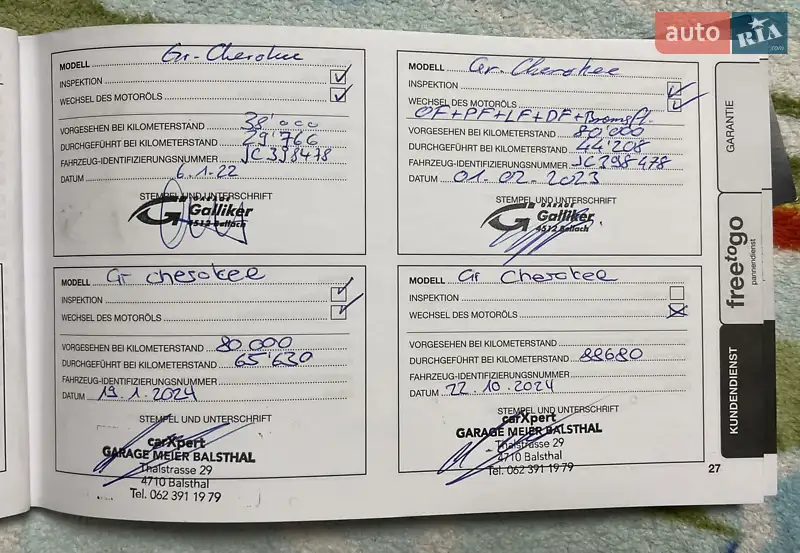 auto RIA .com
MODELL Gr-Cherokee
INSPEKTION
WECHSEL DES MOTORÖLS
VORGESEHEN BEI KILOMETERSTAND 38'000
DURCHGEFÜHRT BEI KILOMETERSTAND 29'766
FAHRZEUG-IDENTIFIZIERUNGSNUMMER JC398478
DATUM 6.1.22
STEMPEL UND UNTERSCHRIFT
GARAGE
Galliker
4512 Bellach
MODELL Gr. Cherokee
INSPEKTION
WECHSEL DES MOTORÖLS
OF+PF+LF+DF+Bremsfl.
VORGESEHEN BEI KILOMETERSTAND 80'000
DURCHGEFÜHRT BEI KILOMETERSTAND 44'208
FAHRZEUG-IDENTIFIZIERUNGSNUMMER JC398478
DATUM 01.02.2023
STEMPEL UND UNTERSCHRIFT
GARAGE
Galliker
4512 Bellach
MODELL Gr cherokee
INSPEKTION
WECHSEL DES MOTORÖLS
VORGESEHEN BEI KILOMETERSTAND 80.000
DURCHGEFÜHRT BEI KILOMETERSTAND 65'630
FAHRZEUG-IDENTIFIZIERUNGSNUMMER
DATUM 19.1.2024
STEMPEL UND UNTERSCHRIFT
carXpert
GARAGE MEIER BALSTHAL
Thalstrasse 29
4710 Balsthal
Tel. 062 391 19 79
MODELL Gr Cherokee
INSPEKTION
WECHSEL DES MOTORÖLS
VORGESEHEN BEI KILOMETERSTAND
DURCHGEFÜHRT BEI KILOMETERSTAND 88680
FAHRZEUG-IDENTIFIZIERUNGSNUMMER
DATUM 22.10.2024
STEMPEL UND UNTERSCHRIFT
carXpert
GARAGE MEIER BALSTHAL
Thalstrasse 29
4710 Balsthal
Tel. 062 391 19 79
27
GARANTIE
freetogo
pannendienst
KUNDENDIENST